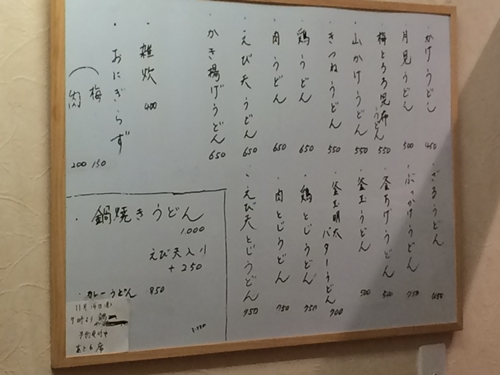 ・かけうどん 450
・月見うどん 500
・梅とろろ昆布うどん 550
・山かけうどん 550
・きつねうどん 550
・鶏うどん 650
・肉うどん 650
・えび天うどん 650
・かき揚げうどん 650
・雑炊 400
・おにぎらず
梅 150
肉 200
・ざるうどん
・ぶっかけうどん 750
・釜あげうどん 500
・釜玉うどん 500
・釜玉明太バターうどん 700
・鶏とじうどん 750
・肉とじうどん 750
・えび天とじうどん 750
・鍋焼きうどん
1.000
えび天入り
+250
・カレーうどん 850
11月
予約受付中